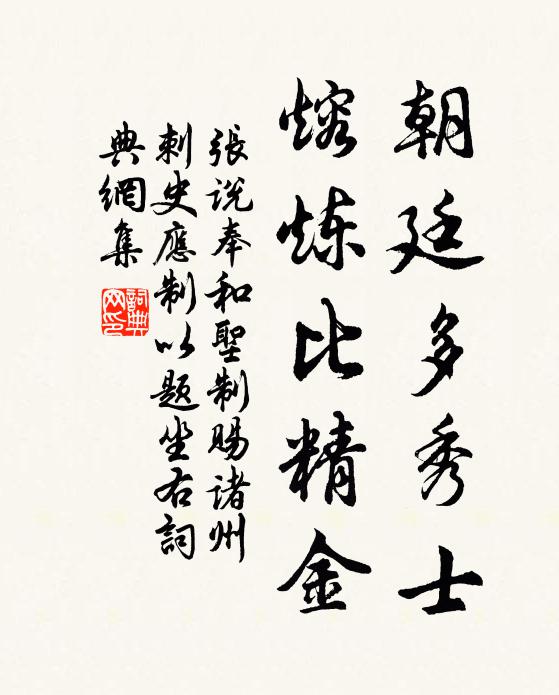 朝廷多秀士
熔炼比精金
張说奉和聖制赐諸州
刺史應制以题坐右詞
典網集
詞典
网印